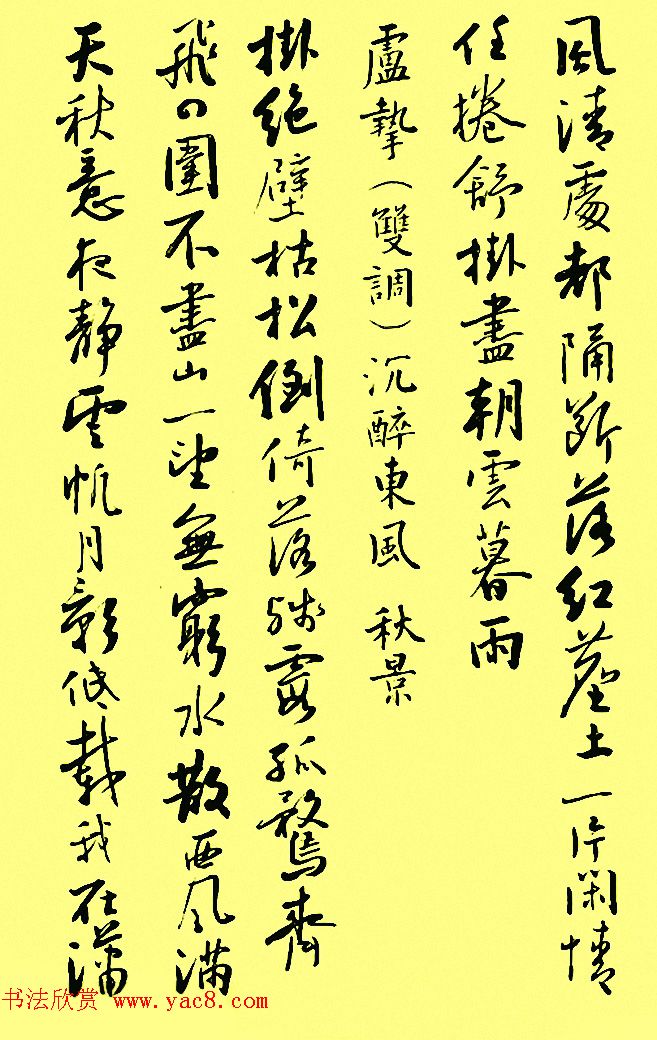 風清處都隔斷落紅塵土一片閑情
任捲舒掛盡朝雲暮雨
盧摯(雙調)沉醉東風 秋景
掛絕壁枯松倒倚落殘霞孤鶩齊
飛四圍不盡山一望無窮水散西風滿
天秋意夜靜雲帆月影低載我在瀟
书法欣赏 www.yac8.com